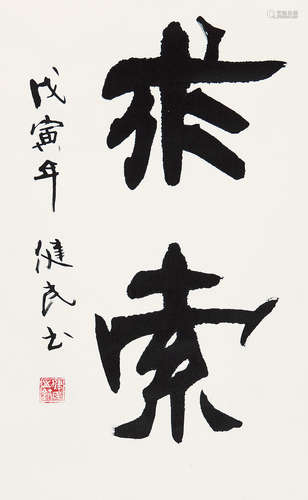 求索
戊寅年 健民书